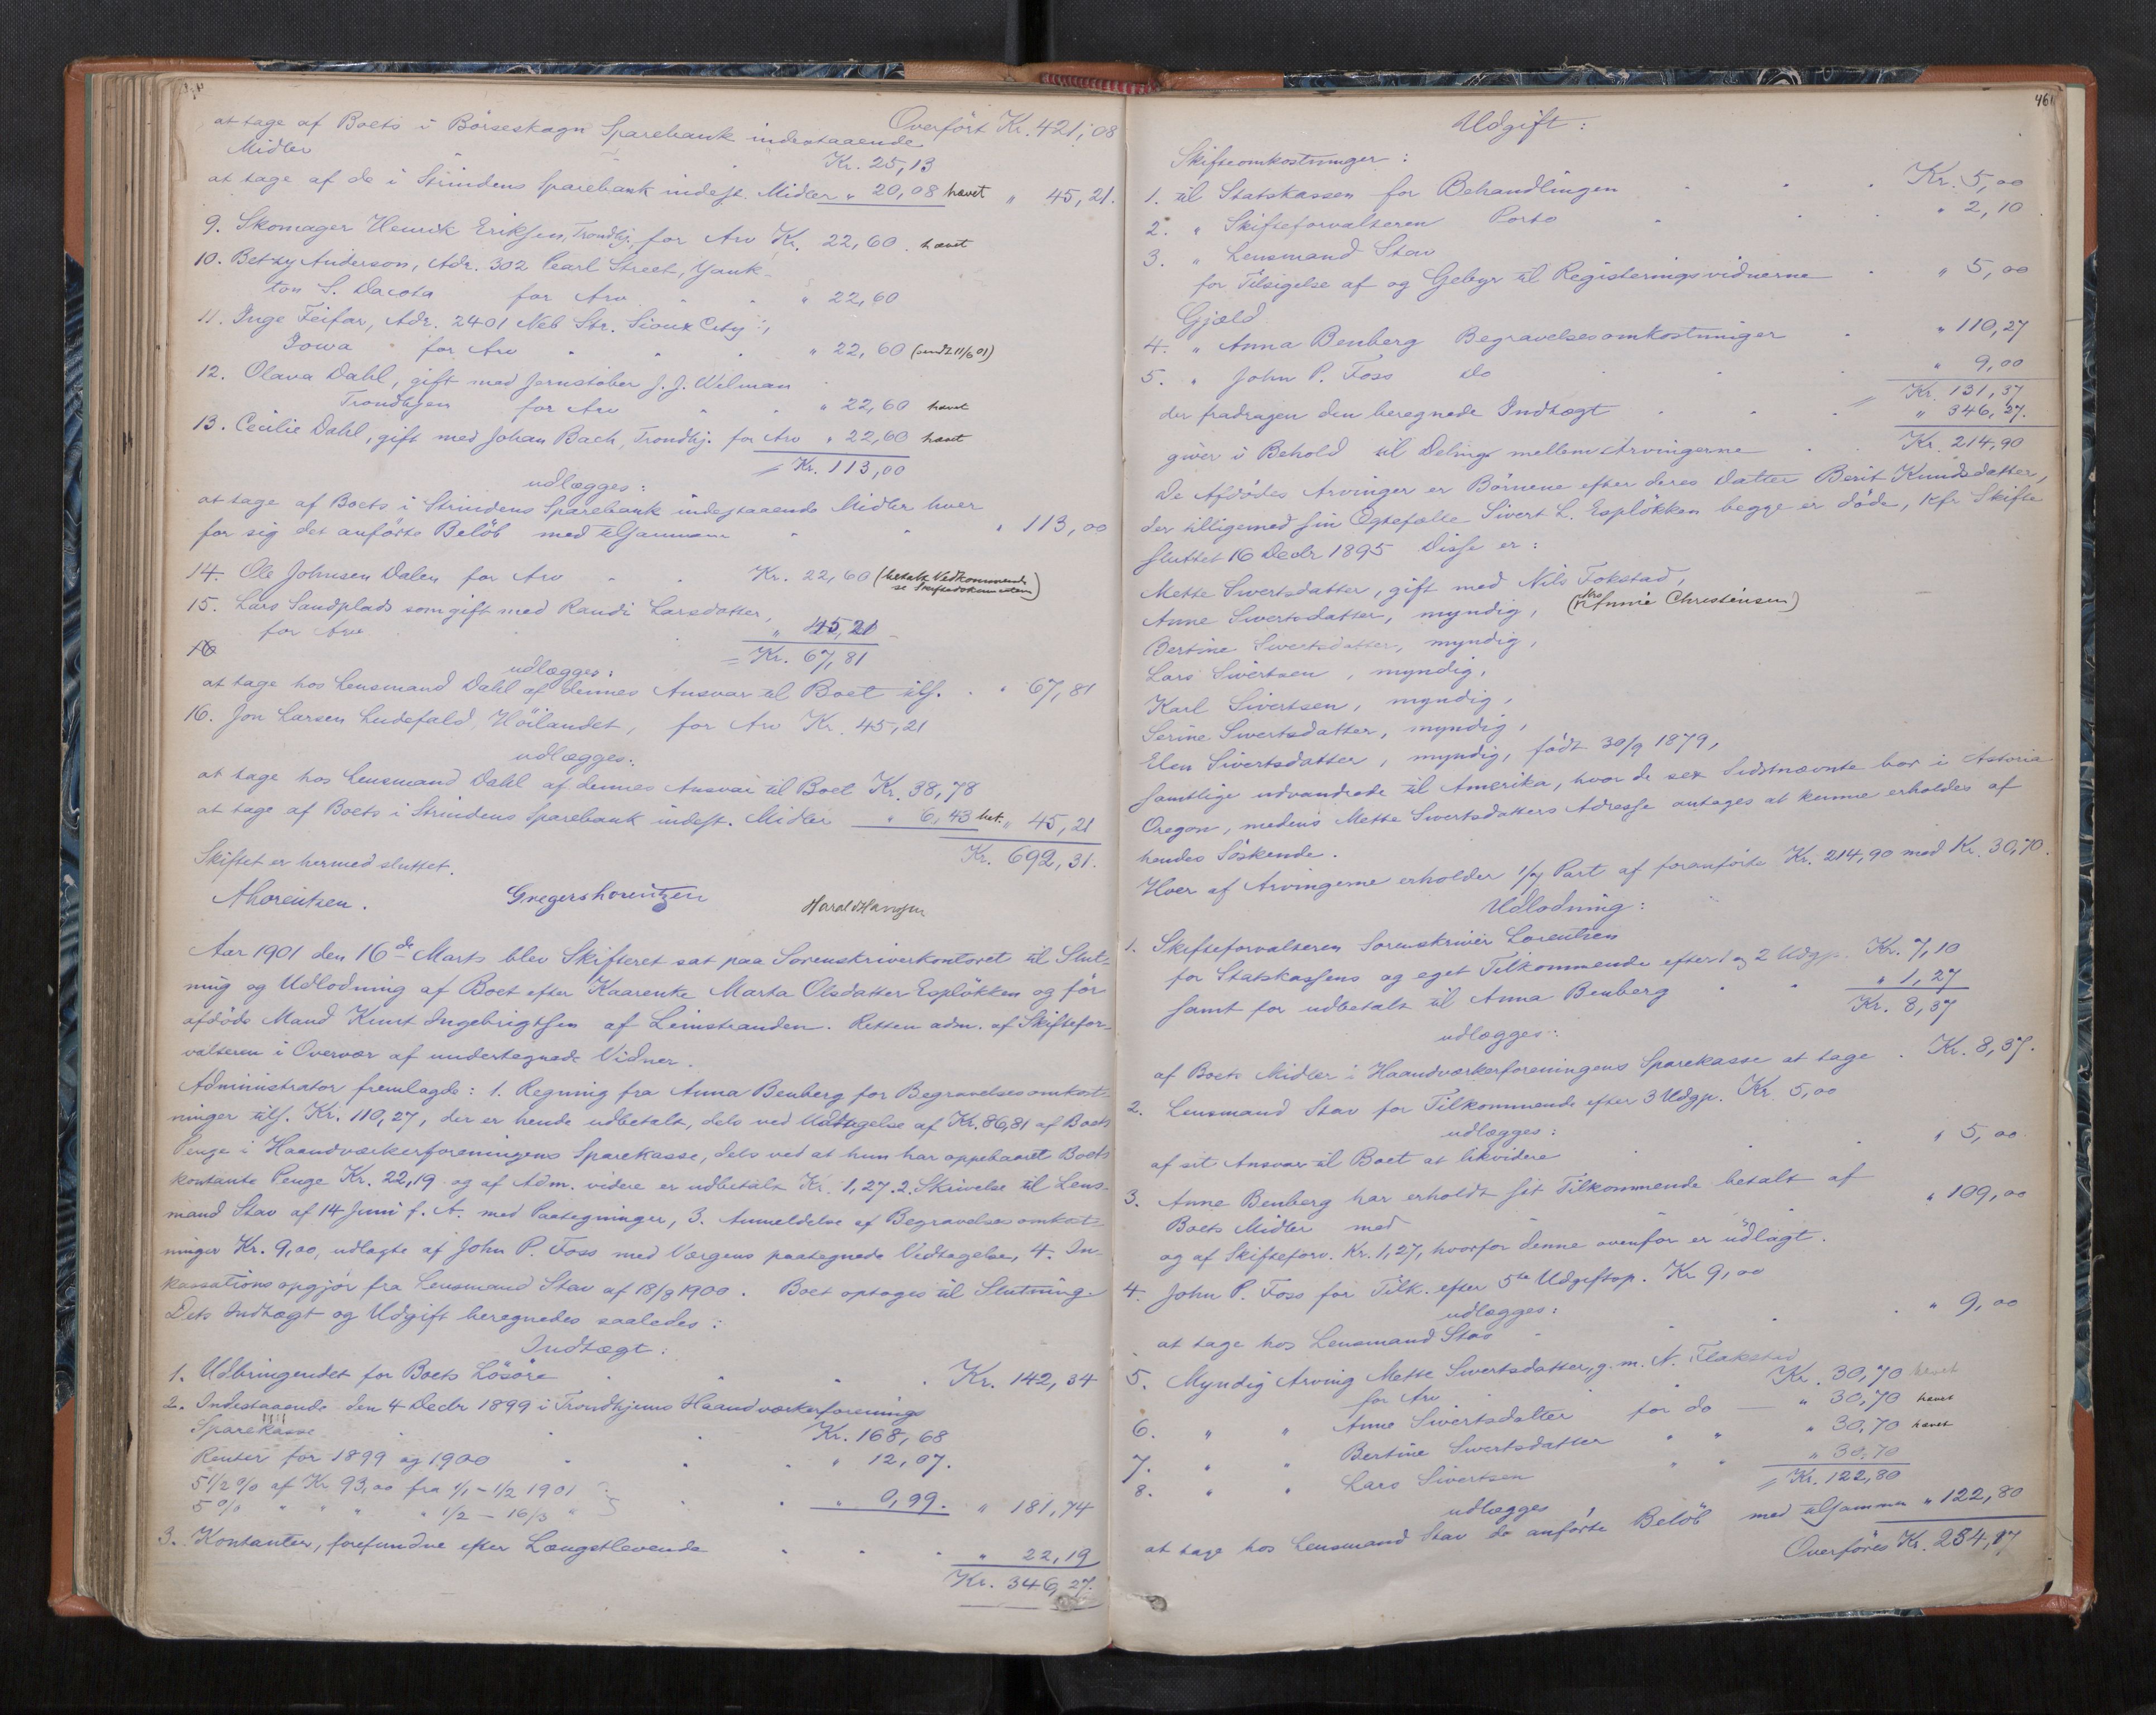 Overført Kr. 421,08
at tage af Boets i Börseskogn Sparebank indestaaende
Midler Kr. 25,13
at tage af de i Strindens Sparebank indest. Midler " 20,08 hævet " 45,21.
9. Skomager Henrik Eriksen, Trondhj. for Arv Kr. 22,60. hævet
10. Betzy Anderson, Adr. 302 Pearl Street, Yank-
ton S. Dacota for Arv " 22,60
11. Inge Feifar, Adr. 2401 Neb Str. Sioux City,
Iowa for Arv " 22,60 (sendt 11/6 01)
12. Olava Dahl, gift med Jernstöber J. J. Wilman
Trondhjem for Arv " 22,60 hævet
13. Cecilie Dahl, gift med Johan Bach, Trondhj. for Arv " 22,60 hævet
= Kr. 113,00
udlægges:
at tage af Boets i Strindens Sparebank indestaaende Midler hver
for sig det anförte Belöb med tilsammen " 113,00
14. Ole Johnsen Dalen for Arv Kr. 22,60 (betalt Vedkommende
se Skiftedokumenterne)
15. Lars Sandplads som gift med Randi Larsdatter,
for Arv " 45,21
16 = Kr. 67,81
udlægges:
at tage hos Lensmand Dahl af dennes Ansvar til Boet tils. " 67,81
16. Jon Larsen Ludefald, Höilandet, for Arv Kr. 45,21
udlægges:
at tage hos Lensmand Dahl af dennes Ansvar til Boet Kr. 38,78
at tage af Boets i Strindens Sparebank indest. Midler " 6,43 hæt. " 45,21
Kr. 692,31.
Skiftet er hermed sluttet.
A Lorentzen. Gregers Lorentzen Harald Hansen
Aar 1901 den 16de Marts blev Skifteret sat paa Sorenskriverkontoret til Slut-
ning og Udlodning af Boet efter Kaarenke Marta Olsdatter Esplökken og för
afdöde Mand Knut Ingebrigtsen af Leinstranden. Retten adm. af Skiftefor-
valteren i Overvær af undertegnede Vidner.
Administrator fremlagde: 1. Regning fra Anna Benberg for Begravelsesomkost-
ninger tils. Kr. 110,27, der er hende udbetalt, dels ved Udtagelse af Kr. 86,81 af Boets
Penge i Haandværkerforeningens Sparekasse, dels ved at hun har oppebaaret Boets
kontante Penge Kr. 22,19 og af Adm. videre er udbetalt Kr. 1,27. 2. Skrivelse til Lens-
mand Stav af 14 Juni f. A. med Paategninger, 3. Anmeldelse af Begravelsesomkost-
ninger Kr. 9,00, udlagte af John P. Foss med Værgens paategnede Vedtagelse, 4. In-
kassationsopgjör fra Lensmand Stav af 18/9 1900. Boet optoges til Slutning.
Dets Indtægt og Udgift beregnedes saaledes:
Indtægt:
1. Udbringendet for Boets Lösöre Kr. 142,34
2. Indestaaende den 4 Decbr 1899 i Trondhjems Haandværkerforenings
Sparekasse Kr. 168,68
Renter for 1899 og 1900 " 12,07.
5 1/2 % af Kr 93,00 fra 1/1 - 1/2 1901
5 % " " " " 1/2 - 16/3 " " 0,99. " 181,74
3. Kontanter, forefundne efter Længstlevende " 22,19
Kr. 346,27.
461
Udgift:
Skifteomkostninger:
1. til Statskassen for Behandlingen Kr. 5,00
2. " Skifteforvalteren Porto " 2,10
3. " Lensmand Stav
for Tilsigelse af og Gebyr til Registeringsvidnerne " 5,00
Gjæld
4. " Anna Benberg Begravelsesomkostninger " 110,27
5. " John P. Foss do " 9,00
= Kr. 131,37
der fradragen den beregnede Indtægt " 346,27.
giver i Behold til Deling mellem Arvingerne Kr. 214,90
De Afdödes Arvinger er Börnene efter deres Datter Berit Knudsdatter,
der tilligemed sin Ægtefælle Sivert L. Esplökken begge er döde, kfr Skifte
sluttet 16 Decbr 1895 Disse er:
Mette Sivertsdatter, gift med Nils Fokstad,
Anne Sivertsdatter, myndig, (Mrs Annie Christensen)
Bertine Sivertsdatter, myndig,
Lars Sivertsen, myndig,
Karl Sivertsen, myndig,
Serine Sivertsdatter, myndig,
Elen Sivertsdatter, myndig, födt 30/9 1879,
samtlige udvandrede til Amerika, hvor de sex Sidstnævnte bor i Astoria
Oregon, medens Mette Sivertsdatters Adresse antages at kunne erholdes af
hendes Söskende.
Hver af Arvingerne erholder 1/7 Part af foranförte Kr. 214,90 med Kr. 30,70.
Udlodning:
1. Skifteforvalteren Sorenskriver Lorentzen
for Statskassens og eget Tilkommende efter 1 og 2 Udgp. Kr. 7,10
samt for udbetalt til Anna Benberg " 1,27
Kr. 8,37
udlægges:
af Boets Midler i Haandværkerforeningens Sparekasse at tage Kr. 8,37.
2. Lensmand Stav for Tilkommende efter 3 Udgp. Kr. 5,00
udlægges:
af sit Ansvar til Boet at likvidere " 5,00
3. Anne Benberg har erholdt sit Tilkommende betalt af
Boets Midler med " 109,00
og af Skifteforv. Kr. 1,27, hvorfor denne ovenfor er udlagt.
4. John P. Foss for Tilk. efter 5te Udgiftsp. Kr 9,00
udlægges:
at tage hos Lensmand Stav " 9,00
5. Myndig Arving Mette Sivertsdatter, g. m. N. Flakstad
for Arv Kr. 30,70 hævet
6. " " Anne Sivertsdatter for do " 30,70 hævet
7. " " Bertine Sivertsdatter " " " 30,70 hævet
8. " " Lars Sivertsen " " " 30,70
= Kr. 122,80
udlægges
at tage hos Lensmand Stav de anförte Belöb med tilsammen " 122,80
Overföres Kr. 254,17